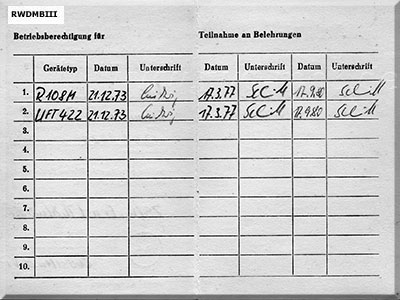 RWDMBIII
Betriebsberechtigung für Teilnahme an Belehrungen
Gerätetyp Datum Unterschrift Datum Unterschrift Datum Unterschrift
1. R108M 21.12.73 17.3.77 17.9.80
2. UFT422 21.12.73 17.3.77 17.9.80
3.
4.
5.
6.
7.
8.
9.
10.